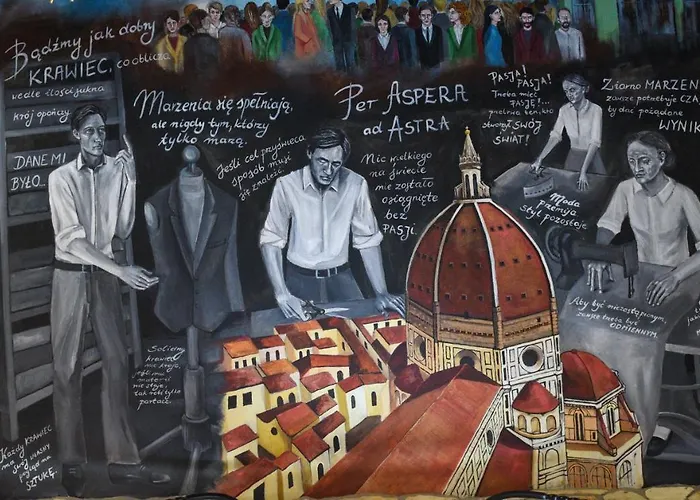 Bądźmy jak dobry
KRAWIEC, co oblicza
wedle ilości sukna
krój opończy
DANE MI
BYŁO...
Marzenia się spełniają,
ale nigdy tym, którzy
tylko marzą.
Jeśli cel przyświeca
sposób musi
się znaleźć.
PER ASPERA
ad ASTRA
Nic wielkiego
na świecie
nie zostało
osiągnięte
bez
PASJI.
PASJA! PASJA!
Trzeba mieć
PASJĘ!...
stworzyć SWÓJ
ŚWIAT!
Ziarno MARZEN
zawsze potrzebuje CZA
by dać pożądane
WYNIK
Moda
przemija
styl pozostaje
Aby być niezastąpionym,
zawsze trzeba być
ODMIENNYM.
Solidny
krawiec
nie kraje,
materii
nie szyje,
tak robi tylko
partacz.
Każdy KRAWIEC
ma
swój WŁASNY
pogląd na
SZTUKĘ.